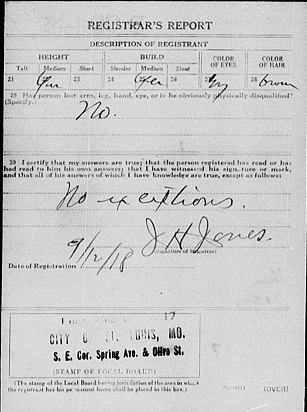 REGISTRAR'S REPORT
DESCRIPTION OF REGISTRANT
HEIGHT BUILD COLOR OF EYES COLOR OF HAIR
Tall Medium Short Slender Medium Stout
21 22 23 24 25 26 27 28
29 Has person lost arm, leg, hand, eye, or is he obviously physically disqualified?
(Specify.)
No.
30 I certify that my answers are true; that the person registered has read or has
had read to him his own answers; that I have witnessed his signature or mark,
and that all of his answers of which I have knowledge are true, except as follows:
No
J H Jones.
(Signature of Registrar)
9/12/18
Date of Registration
17
CITY OF ST. LOUIS, MO.
S. E. Cor. Spring Ave. & Olive St.
(STAMP OF LOCAL BOARD)
(The stamp of the Local Board having jurisdiction of the area in which
the registrant has his permanent home shall be placed in this box.)
(OVER)